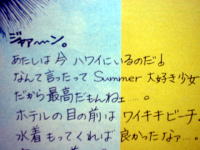 ジャァ〜〜ン。
あたしは今ハワイにいるのだ♪
なんて言ったってSummer大好き少女
だから最高だもんねェ…。
ホテルの目の前はワイキキビーチ。
水着もってくれば良かったなァ…。